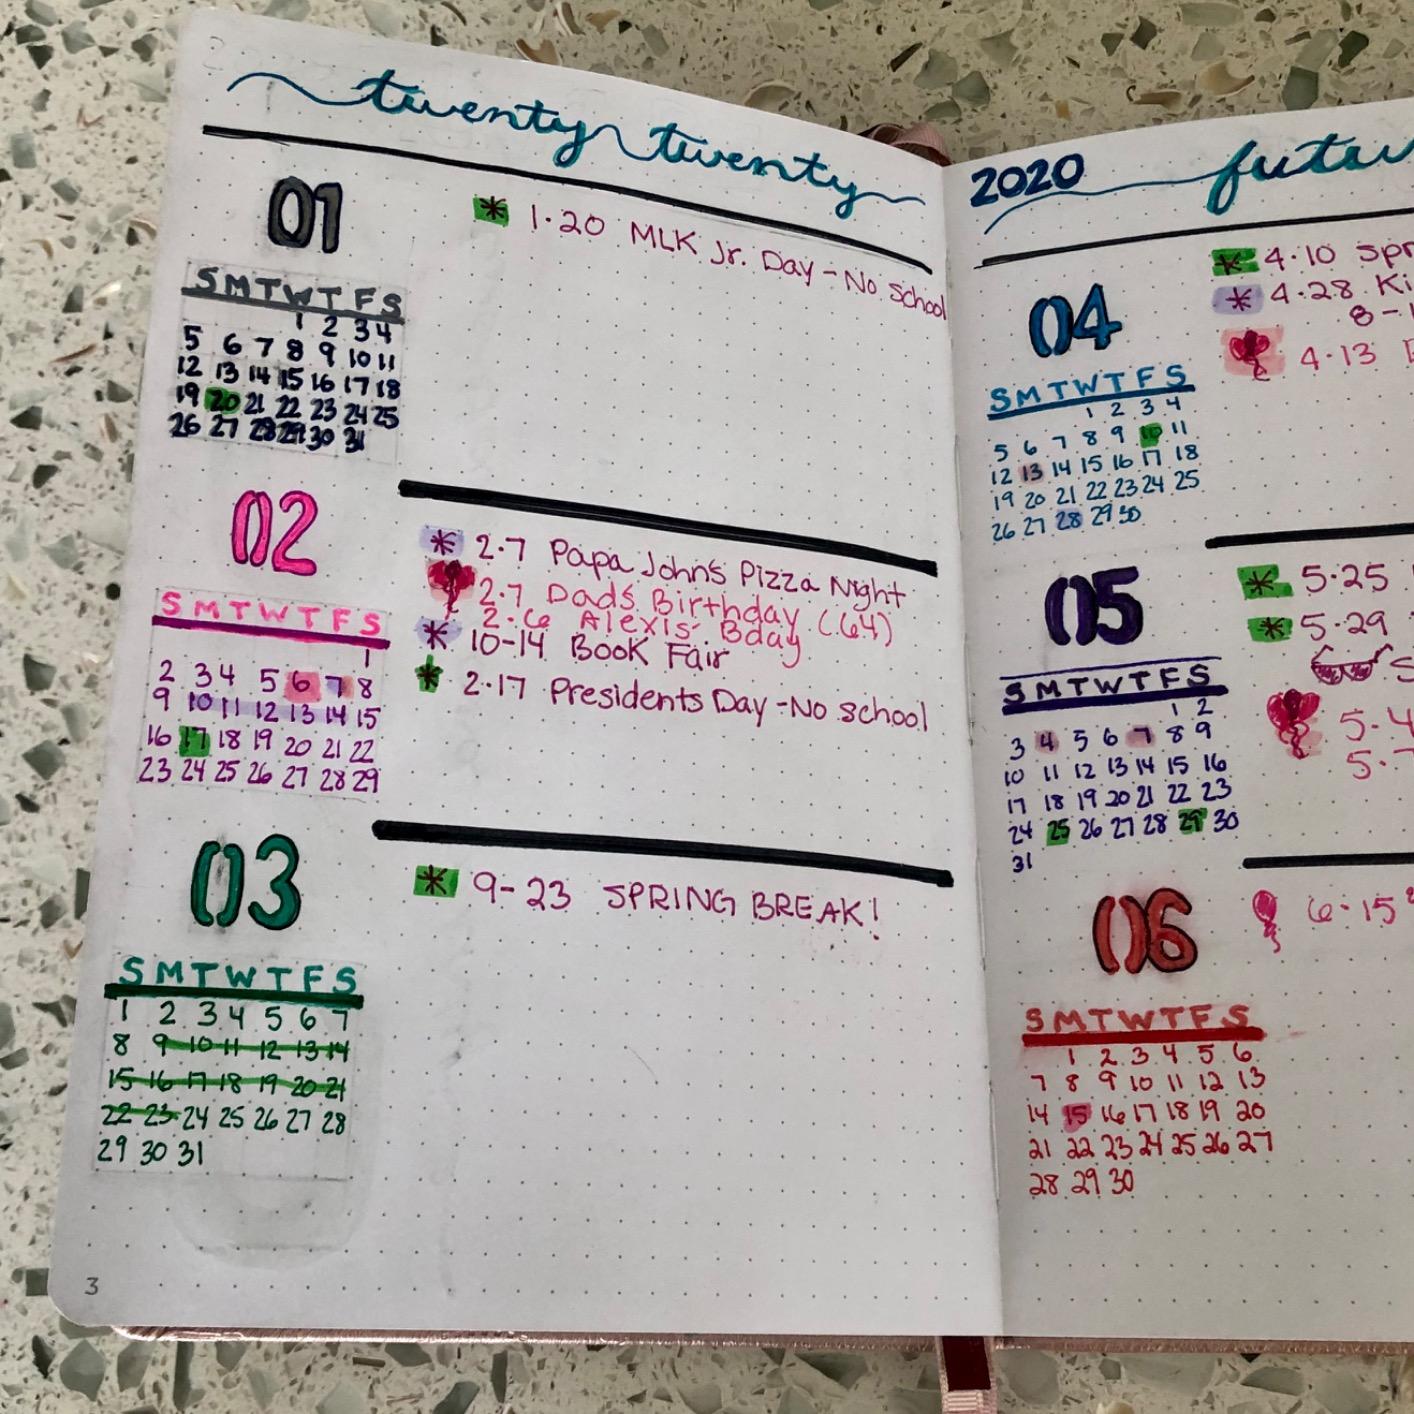 twenty twenty
01
* 1·20 MLK Jr. Day - No School
S M T W T F S
1 2 3 4
5 6 7 8 9 10 11
12 13 14 15 16 17 18
19 20 21 22 23 24 25
26 27 28 29 30 31
02
* 2·7 Papa John's Pizza Night
2·7 Dad's Birthday (64)
2·6 Alexis' Bday
* 10-14 Book Fair
* 2·17 Presidents Day - No School
S M T W T F S
1
2 3 4 5 6 7 8
9 10 11 12 13 14 15
16 17 18 19 20 21 22
23 24 25 26 27 28 29
03
* 9-23 SPRING BREAK!
S M T W T F S
1 2 3 4 5 6 7
8 9 10 11 12 13 14
15 16 17 18 19 20 21
22 23 24 25 26 27 28
29 30 31
3
2020 futu
04
* 4·10 Spr
* 4·28 Ki
8-1
4·13
S M T W T F S
1 2 3 4
5 6 7 8 9 10 11
12 13 14 15 16 17 18
19 20 21 22 23 24 25
26 27 28 29 30
05
* 5·25
* 5·29
S
5·4
5·7
S M T W T F S
1 2
3 4 5 6 7 8 9
10 11 12 13 14 15 16
17 18 19 20 21 22 23
24 25 26 27 28 29 30
31
06
6·15
S M T W T F S
1 2 3 4 5 6
7 8 9 10 11 12 13
14 15 16 17 18 19 20
21 22 23 24 25 26 27
28 29 30